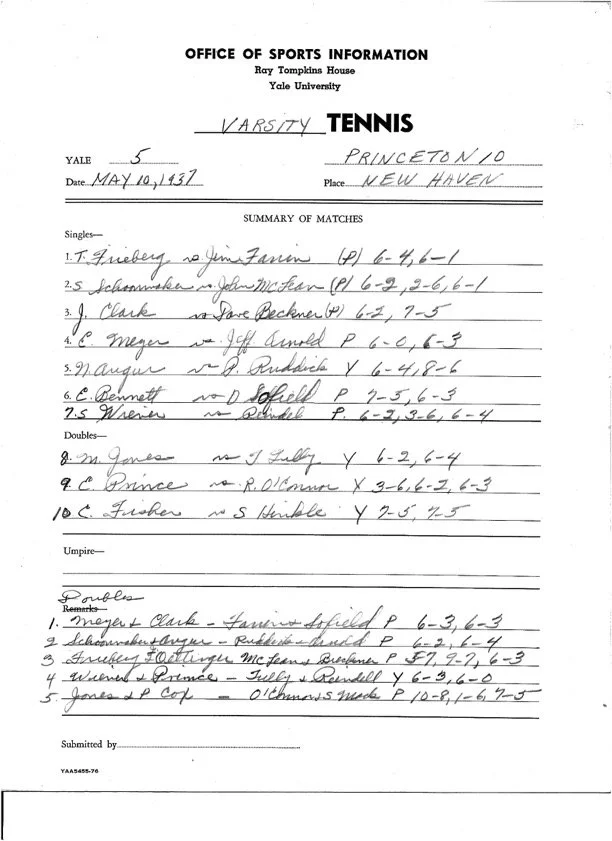 OFFICE OF SPORTS INFORMATION
Ray Tompkins House
Yale University
VARSITY TENNIS
YALE 5 PRINCETON 10
Date MAY 10, 1937 Place NEW HAVEN
SUMMARY OF MATCHES
Singles—
1. T. Frieberg vs Jim Farrin (P) 6-4, 6-1
2. S Schoonmaker vs John McFean (P) 6-2, 2-6, 6-1
3. J. Clark vs Dave Beckner (P) 6-2, 7-5
4. E. Meyer vs Jeff Arnold P 6-0, 6-3
5. N. Angur vs P. Ruddick Y 6-4, 8-6
6. E. Bennett vs D Sofield P 7-5, 6-3
7. S Wiener vs Reindel P. 6-2, 3-6, 6-4
Doubles—
8. M. Jones vs T Tully Y 6-2, 6-4
9 C. Prince vs. R. O'Connor Y 3-6, 6-2, 6-3
10 C. Fisher vs S Hinkle Y 7-5, 7-5
Umpire—
Doubles
Remarks—
1. Meyer & Clark - Farrin & Sofield P 6-3, 6-3
2 Schoonmaker & Angur - Ruddick & Arnold P 6-2, 6-4
3 Frieberg & Oettinger McFean & Breckner P 5-7, 9-7, 6-3
4 Wiener & Prince - Tully & Reindell Y 6-3, 6-0
5. Jones & P Cox - O'Connor S Made P 10-8, 1-6, 7-5
Submitted by
YAA5455-76